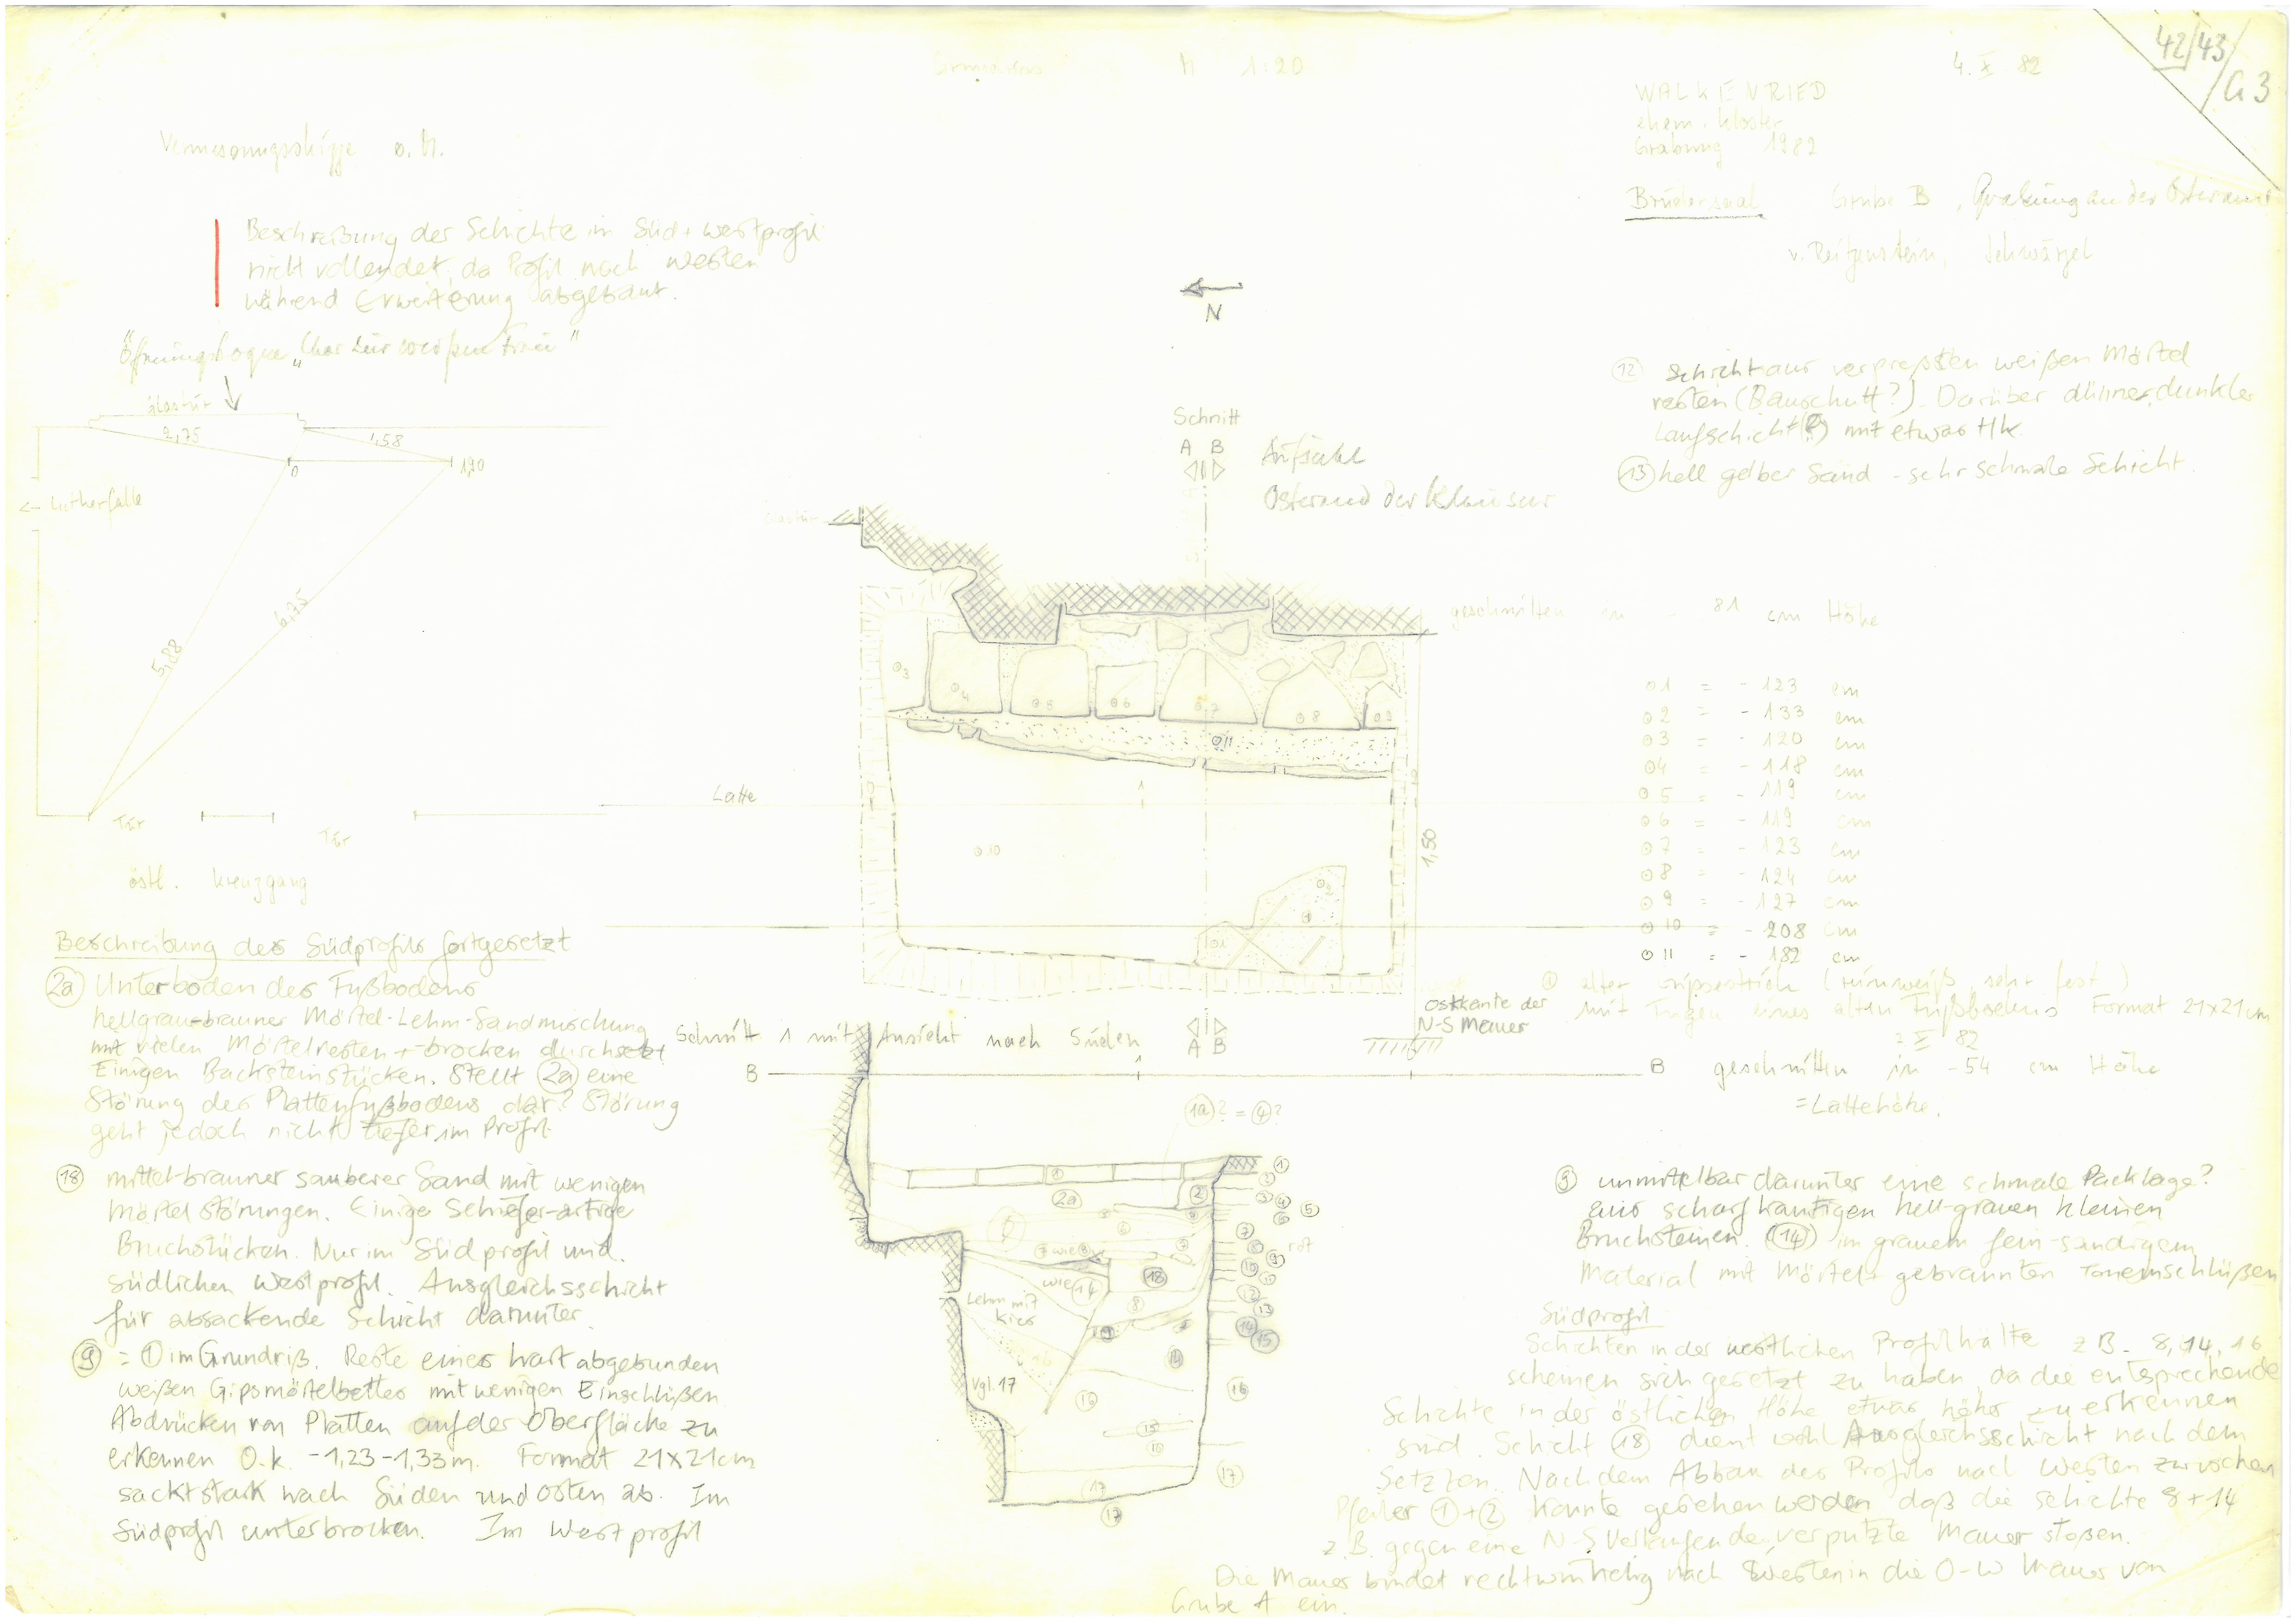 42/43/G3
M 1:20
4. X. 82
WALKENRIED
ehem. Kloster
Grabung 1982
Brüdersaal Grube B, Grabung an der Ostwand
v. Reitzenstein,
Vermessungsskizze o. M.
Beschreibung der Schichte in Süd + Westprofil
nicht vollendet, da Profil nach Westen
während Erweiterung abgebaut.
Öffnungsbogen
Glastür
2,75
4,58
0
1,90
← Lutherfalle
5,88
6,75
Tür
Tür
östl. Kreuzgang
N
Schnitt
A B
Aufsicht
Ostwand der Klausur
Glastür
⑫ Schicht aus verpreßten weißen Mörtel
resten (Bauschutt?). Darüber dünner dunkler
Laufschicht (?) mit etwas Hk.
⑬ hell gelber Sand - sehr schmale Schicht.
geschnitten in - 81 cm Höhe
3
4
5
6
7
8
9
11
10
2
1
1
Latte
1,50
⊙1 = - 123 cm
⊙2 = - 133 cm
⊙3 = - 120 cm
⊙4 = - 118 cm
⊙5 = - 119 cm
⊙6 = - 119 cm
⊙7 = - 123 cm
⊙8 = - 124 cm
⊙9 = - 127 cm
⊙10 = - 208 cm
⊙11 = - 182 cm
① alter Gipsestrich (reinweiß, sehr fest)
mit Fugen eines alten Fußbodens Format 21x21cm
2. X 82
Ostkante der
N-S Mauer
Schnitt 1 mit Ansicht nach Süden
A B
B
B geschnitten in -54 cm Höhe
= Lattehöhe.
Beschreibung des Südprofils fortgesetzt
(2a) Unterboden des Fußbodens
hellgrau-brauner Mörtel-Lehm-Sandmischung
mit vielen Mörtelresten + -brocken durchsetzt
Einigen Backsteinstücken. Stellt (2a) eine
Störung des Plattenfußbodens dar? Störung
geht jedoch nicht tiefer im Profil.
⑱ mittel-brauner sauberer Sand mit wenigen
Mörtel Störungen. Einige Schiefer-artige
Bruchstücken. Nur im Südprofil und
südlichen Westprofil. Ausgleichsschicht
für absackende Schicht darunter.
⑨ = ① im Grundriß. Reste eines hart abgebunden
weißen Gipsmörtelbettes mit wenigen Einschlüßen
Abdrücken von Platten auf der Oberfläche zu
erkennen O.k. -1,23-1,33m. Format 21x21cm
sackt stark nach Süden und Osten ab. Im
Südprofil unterbrochen. Im Westprofil
(1a)? = ④?
2a
2
wie 8
wie 14
18
8
9
14
Lehm mit
Kies
Vgl. 17
16
15
16
17
17
1
2
3
4
5
6
7
8
9
rot
12
13
14
15
16
17
⑨ unmittelbar darunter eine schmale Packlage?
aus scharfkantigen hell-grauen kleinen
Bruchsteinen. ⑭ im grauem fein-sandigem
Material mit Mörtel + gebrannten Toneinschlüßen
Südprofil
Schichten in der westlichen Profilhälfte z.B. 8, 14, 16
scheinen sich gesetzt zu haben, da die entsprechende
Schichte in der östlichen Höhe etwas höher zu erkennen
sind. Schicht ⑱ dient wohl Ausgleichsschicht nach dem
Setzen. Nach dem Abbau des Profils nach Westen zwischen
Pfeiler ①+② konnte gesehen werden daß die Schichte 8+14
z.B. gegen eine N-S Verlaufende, verputzte Mauer stoßen.
Die Mauer bindet rechtwinkelig nach Westen in die O-W Mauer von
Grube A ein.